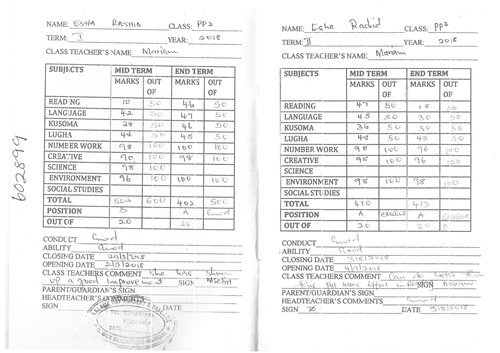 NAME: ESHA RASHID CLASS: PP2
TERM: I YEAR: 2018
CLASS TEACHER'S NAME Mariam
SUBJECTS MID TERM END TERM
MARKS OUT OF MARKS OUT OF
READING 10 50 46 50
LANGUAGE 42 50 47 50
KUSOMA 50 46 50
LUGHA 44 50 45 50
NUMBER WORK 98 100 100 100
CREATIVE 90 100 98 100
SCIENCE
ENVIRONMENT 96 100 100 100
SOCIAL STUDIES
TOTAL 600 402 500
POSITION A Good
OUT OF 20
CONDUCT Good
ABILITY Good
CLOSING DATE
OPENING DATE 2/5/2018
CLASS TEACHERS COMMENT She has shown
up a good improvement SIGN
PARENT/GUARDIAN'S SIGN
HEADTEACHER'S COMMENTS
SIGN DATE
6028499
NAME: Esha Rashid CLASS: PP2
TERM: II YEAR: 2018
CLASS TEACHER'S NAME Mariam
SUBJECTS MID TERM END TERM
MARKS OUT OF MARKS OUT OF
READING 47 50 18 50
LANGUAGE 45 50 30 50
KUSOMA 36 50 30 50
LUGHA 48 50 45 50
NUMBER WORK 98 100 96 100
CREATIVE 98 100 96 100
SCIENCE
ENVIRONMENT 98 100 98 100
SOCIAL STUDIES
TOTAL 470 413
POSITION A A
OUT OF 20 20
CONDUCT Good
ABILITY Good
CLOSING DATE 3/8/2018
OPENING DATE
CLASS TEACHERS COMMENT Can do
put more effort in
PARENT/GUARDIAN'S SIGN
HEADTEACHER'S COMMENTS Good
SIGN DATE 3/8/2018